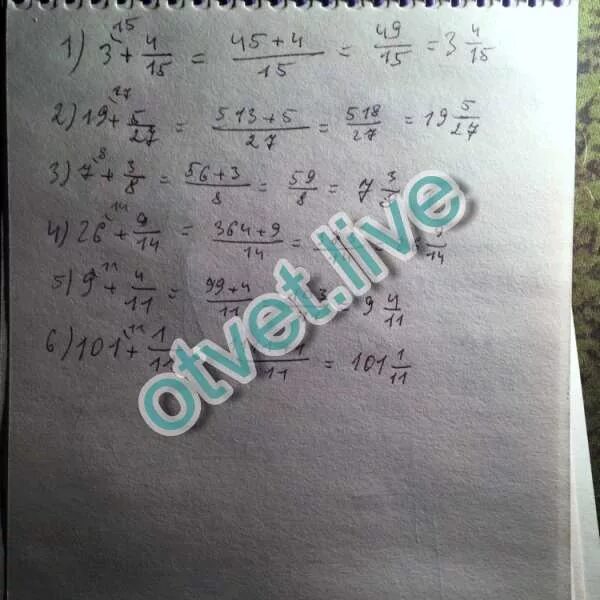 1) 3 + 4/15 = 45+4/15 = 49/15 = 3 4/15
2) 19 + 5/27 = 513+5/27 = 518/27 = 19 5/27
3) 7 + 3/8 = 56+3/8 = 59/8 = 7 3
4) 26 + 9/14 = 364+9/14 = /14
5) 9 + 4/11 = 99+4/11 = 9 4/11
6) 101 + 1/11 /11 = 101 1/11
otvet.live